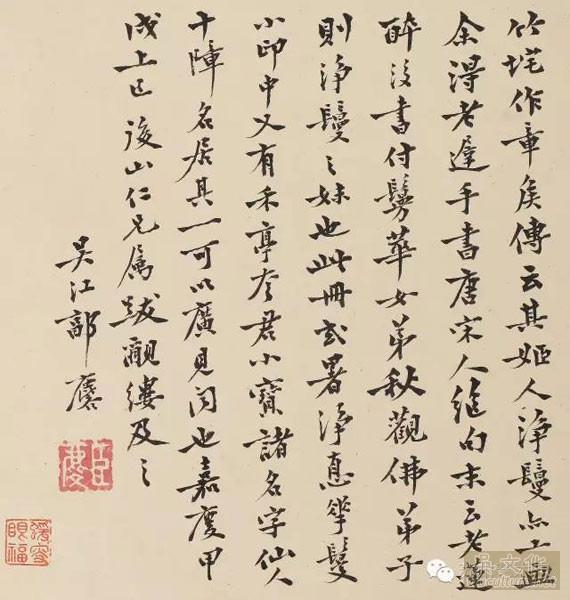 竹垞作章侯傳云其姬人淨鬘亦工畫
余淂老遲手書唐宋人絕句末云老蓮
醉後書付鬘華女弟秋觀佛弟子
則淨鬘之妹也此冊或署淨息華鬘
小印中又有禾亭君小寶諸名字仙人
十障名居其一可以廣見聞也嘉慶甲
戌上巳後山仁兄屬跋覼縷及之
吳江郭麐
臣麐
眼福
吴文化